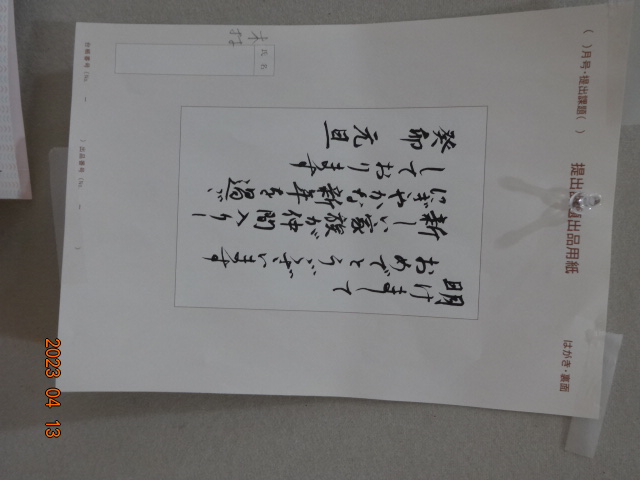 ( )月号・提出課題( )
提出課題出品用紙
はがき・裏面
明けまして
おめでとうございます
新しい家族が仲間入りし
にぎやかな新年を過ご
しております
癸卯 元旦
氏名
出品番号 (No. ー )
2023 04 13